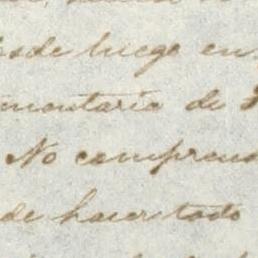 esde luego en
mentario de
No comprend
de hacer todo